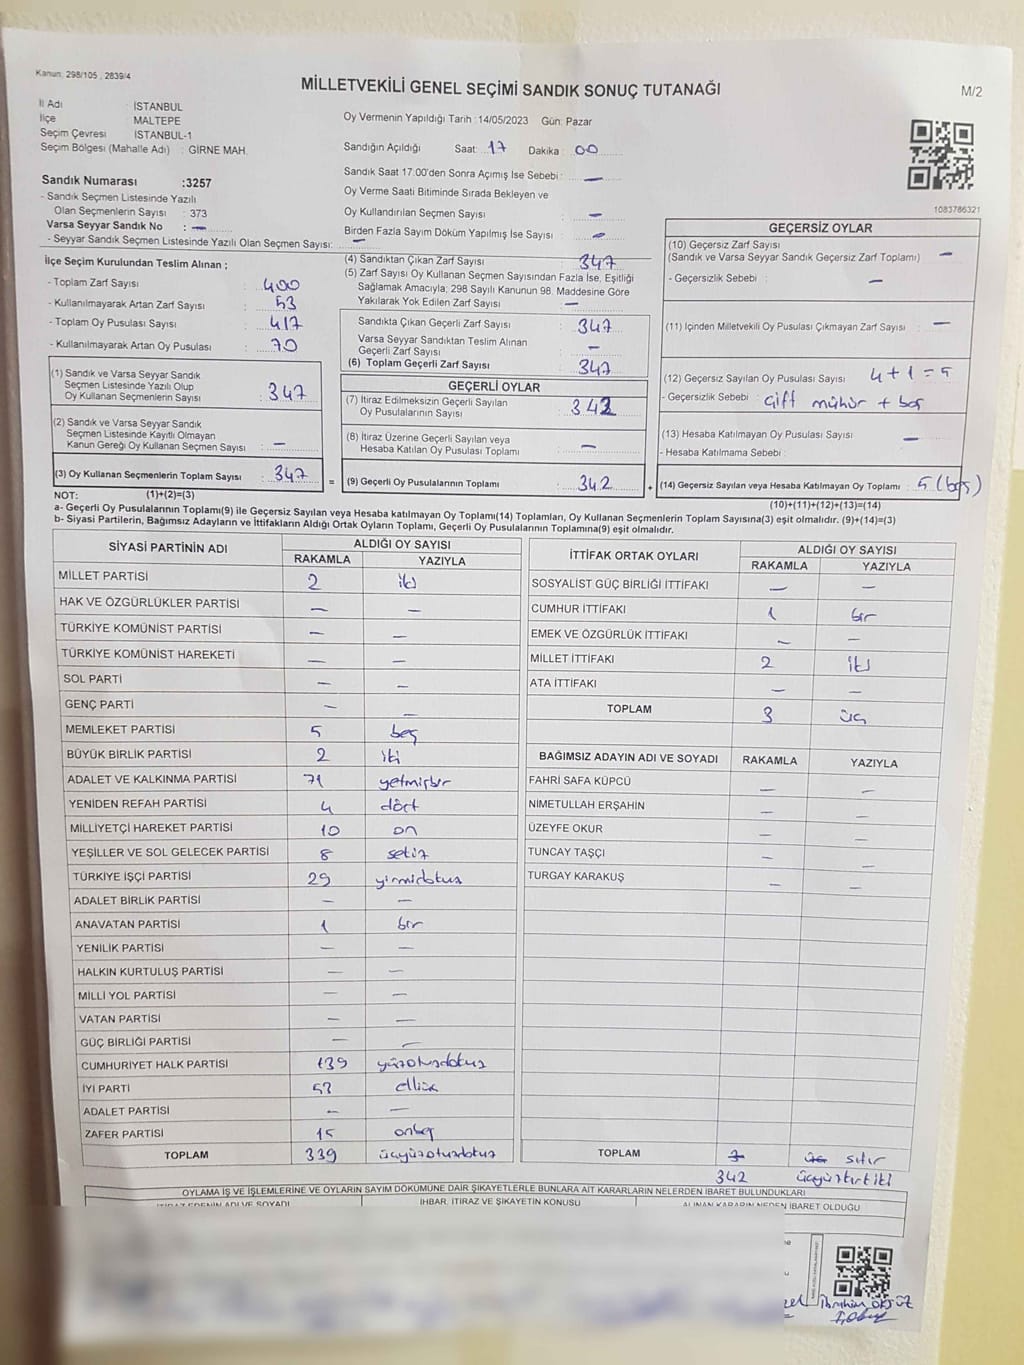 Kanun: 298/105 , 2839/4
MİLLETVEKİLİ GENEL SEÇİMİ SANDIK SONUÇ TUTANAĞI
M/2
İl Adı : İSTANBUL
İlçe MALTEPE
Seçim Çevresi İSTANBUL-1
Seçim Bölgesi (Mahalle Adı) : GİRNE MAH.
Oy Vermenin Yapıldığı Tarih : 14/05/2023 Gün: Pazar
Sandığın Açıldığı Saat: 17 Dakika : 00
Sandık Saat 17.00'den Sonra Açımış İse Sebebi : —
Oy Verme Saati Bitiminde Sırada Bekleyen ve
Oy Kullandırılan Seçmen Sayısı : —
Birden Fazla Sayım Döküm Yapılmış İse Sayısı : —
1083786321
Sandık Numarası :3257
- Sandık Seçmen Listesinde Yazılı
Olan Seçmenlerin Sayısı : 373
Varsa Seyyar Sandık No : —
- Seyyar Sandık Seçmen Listesinde Yazılı Olan Seçmen Sayısı: —
İlçe Seçim Kurulundan Teslim Alınan ;
- Toplam Zarf Sayısı : 400
- Kullanılmayarak Artan Zarf Sayısı : 53
- Toplam Oy Pusulası Sayısı : 417
- Kullanılmayarak Artan Oy Pusulası : 70
(1) Sandık ve Varsa Seyyar Sandık
Seçmen Listesinde Yazılı Olup
Oy Kullanan Seçmenlerin Sayısı : 347
(2) Sandık ve Varsa Seyyar Sandık
Seçmen Listesinde Kayıtlı Olmayan
Kanun Gereği Oy Kullanan Seçmen Sayısı : —
(3) Oy Kullanan Seçmenlerin Toplam Sayısı : 347
(4) Sandıktan Çıkan Zarf Sayısı : 347
(5) Zarf Sayısı Oy Kullanan Seçmen Sayısından Fazla İse, Eşitliği
Sağlamak Amacıyla; 298 Sayılı Kanunun 98. Maddesine Göre
Yakılarak Yok Edilen Zarf Sayısı : —
Sandıkta Çıkan Geçerli Zarf Sayısı : 347
Varsa Seyyar Sandıktan Teslim Alınan
Geçerli Zarf Sayısı : —
(6) Toplam Geçerli Zarf Sayısı : 347
GEÇERLİ OYLAR
(7) İtiraz Edilmeksizin Geçerli Sayılan
Oy Pusulalarının Sayısı : 342
(8) İtiraz Üzerine Geçerli Sayılan veya
Hesaba Katılan Oy Pusulası Toplamı : —
= (9) Geçerli Oy Pusulalarının Toplamı : 342
GEÇERSİZ OYLAR
(10) Geçersiz Zarf Sayısı
(Sandık ve Varsa Seyyar Sandık Geçersiz Zarf Toplamı) : —
- Geçersizlik Sebebi : —
(11) İçinden Milletvekili Oy Pusulası Çıkmayan Zarf Sayısı : —
(12) Geçersiz Sayılan Oy Pusulası Sayısı : 4+1=5
- Geçersizlik Sebebi : Çift mühür + boş
(13) Hesaba Katılmayan Oy Pusulası Sayısı : —
- Hesaba Katılmama Sebebi :
+ (14) Geçersiz Sayılan veya Hesaba Katılmayan Oy Toplamı : 5 (beş)
NOT: (1)+(2)=(3) (10)+(11)+(12)+(13)=(14)
a- Geçerli Oy Pusulalarının Toplamı(9) ile Geçersiz Sayılan veya Hesaba katılmayan Oy Toplamı(14) Toplamları, Oy Kullanan Seçmenlerin Toplam Sayısına(3) eşit olmalıdır. (9)+(14)=(3)
b- Siyasi Partilerin, Bağımsız Adayların ve İttifakların Aldığı Ortak Oyların Toplamı, Geçerli Oy Pusulalarının Toplamına(9) eşit olmalıdır.
SİYASİ PARTİNİN ADI ALDIĞI OY SAYISI
RAKAMLA YAZIYLA
MİLLET PARTİSİ 2 iki
HAK VE ÖZGÜRLÜKLER PARTİSİ — —
TÜRKİYE KOMÜNİST PARTİSİ — —
TÜRKİYE KOMÜNİST HAREKETİ — —
SOL PARTİ — —
GENÇ PARTİ — —
MEMLEKET PARTİSİ 5 beş
BÜYÜK BİRLİK PARTİSİ 2 iki
ADALET VE KALKINMA PARTİSİ 71 yetmişbir
YENİDEN REFAH PARTİSİ 4 dört
MİLLİYETÇİ HAREKET PARTİSİ 10 on
YEŞİLLER VE SOL GELECEK PARTİSİ 8 sekiz
TÜRKİYE İŞÇİ PARTİSİ 29 yirmidokuz
ADALET BİRLİK PARTİSİ — —
ANAVATAN PARTİSİ 1 bir
YENİLİK PARTİSİ — —
HALKIN KURTULUŞ PARTİSİ — —
MİLLİ YOL PARTİSİ — —
VATAN PARTİSİ — —
GÜÇ BİRLİĞİ PARTİSİ — —
CUMHURİYET HALK PARTİSİ 139 yüzotuzdokuz
İYİ PARTİ 53 elliüç
ADALET PARTİSİ — —
ZAFER PARTİSİ 15 onbeş
TOPLAM 339 üçyüzotuzdokuz
İTTİFAK ORTAK OYLARI ALDIĞI OY SAYISI
RAKAMLA YAZIYLA
SOSYALİST GÜÇ BİRLİĞİ İTTİFAKI — —
CUMHUR İTTİFAKI 1 bir
EMEK VE ÖZGÜRLÜK İTTİFAKI — —
MİLLET İTTİFAKI 2 iki
ATA İTTİFAKI — —
TOPLAM 3 üç
BAĞIMSIZ ADAYIN ADI VE SOYADI RAKAMLA YAZIYLA
FAHRİ SAFA KÜPCÜ — —
NİMETULLAH ERŞAHİN — —
ÜZEYFE OKUR — —
TUNCAY TAŞÇI — —
TURGAY KARAKUŞ — —
TOPLAM sıfır
342 üçyüzkırkiki
OYLAMA İŞ VE İŞLEMLERİNE VE OYLARIN SAYIM DÖKÜMÜNE DAİR ŞİKAYETLERLE BUNLARA AİT KARARLARIN NELERDEN İBARET BULUNDUKLARI
İTİRAZ EDENİN ADI VE SOYADI İHBAR, İTİRAZ VE ŞİKAYETİN KONUSU ALINAN KARARIN NEDEN İBARET OLDUĞU
İbrahim